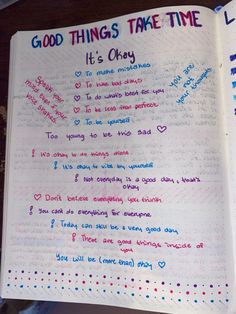 GOOD THINGS TAKE TIME
It's Okay
♡ To make mistakes
♡ To have bad days
♡ To do what's best for you
♡ To be less than perfect
♡ To be yourself
You are
not your
thoughts
Too young to be this sad ♡
It's okay to do things alone
It's okay to vibe by yourself
Not everyday is a good day, that's
okay
♡ Don't believe everything you think
You can't do everything for everyone
Today can still be a very good day
There are good things inside of
you
You will be (more than) okay ♡